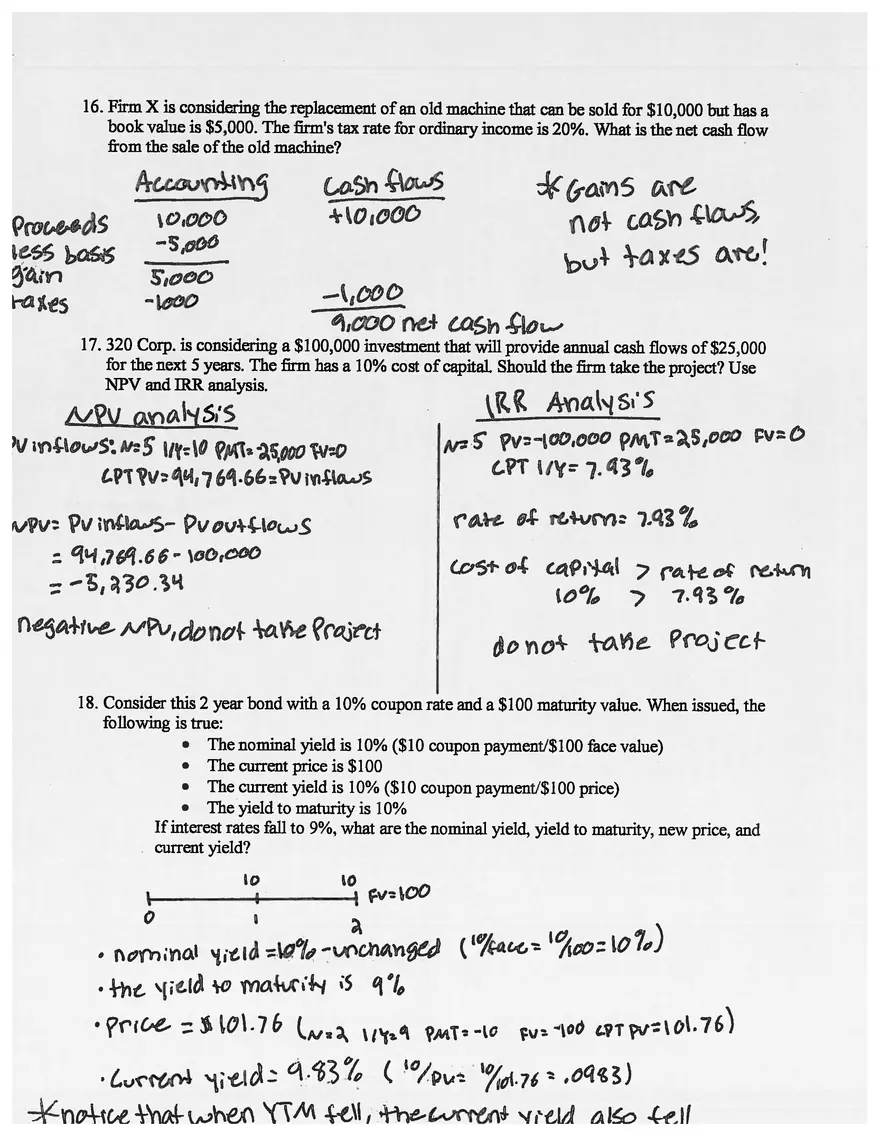 16. Firm X is considering the replacement of an old machine that can be sold for $10,000 but has a
book value is $5,000. The firm's tax rate for ordinary income is 20%. What is the net cash flow
from the sale of the old machine?
Accounting Cash flows
Proceeds 10,000 +10,000
less basis -5,000
gain 5,000
taxes -1000 -1,000
9,000 net cash flow
* Gains are
not cash flows,
but taxes are!
17. 320 Corp. is considering a $100,000 investment that will provide annual cash flows of $25,000
for the next 5 years. The firm has a 10% cost of capital. Should the firm take the project? Use
NPV and IRR analysis.
NPV analysis
PV inflows: N=5 I/Y=10 PMT=25,000 FV=0
CPT PV=94,769.66=PV inflows
NPV= PV inflows- PV outflows
= 94,769.66-100,000
= -5,230.34
negative NPV, do not take Project
IRR Analysis
N=5 PV=-100,000 PMT=25,000 FV=0
CPT I/Y= 7.93%
rate of return= 7.93%
cost of capital > rate of return
10% > 7.93%
do not take Project
18. Consider this 2 year bond with a 10% coupon rate and a $100 maturity value. When issued, the
following is true:
• The nominal yield is 10% ($10 coupon payment/$100 face value)
• The current price is $100
• The current yield is 10% ($10 coupon payment/$100 price)
• The yield to maturity is 10%
If interest rates fall to 9%, what are the nominal yield, yield to maturity, new price, and
current yield?
10 10
FV=100
0 1 2
• nominal yield =10% -unchanged (10/face = 10/100=10%)
• the yield to maturity is 9%
• Price = $101.76 (N=2 I/Y=9 PMT=-10 FV=-100 CPT PV=101.76)
• Current yield= 9.83% (10/PV= 10/101.76 = .0983)
* notice that when YTM fell, the current yield also fell